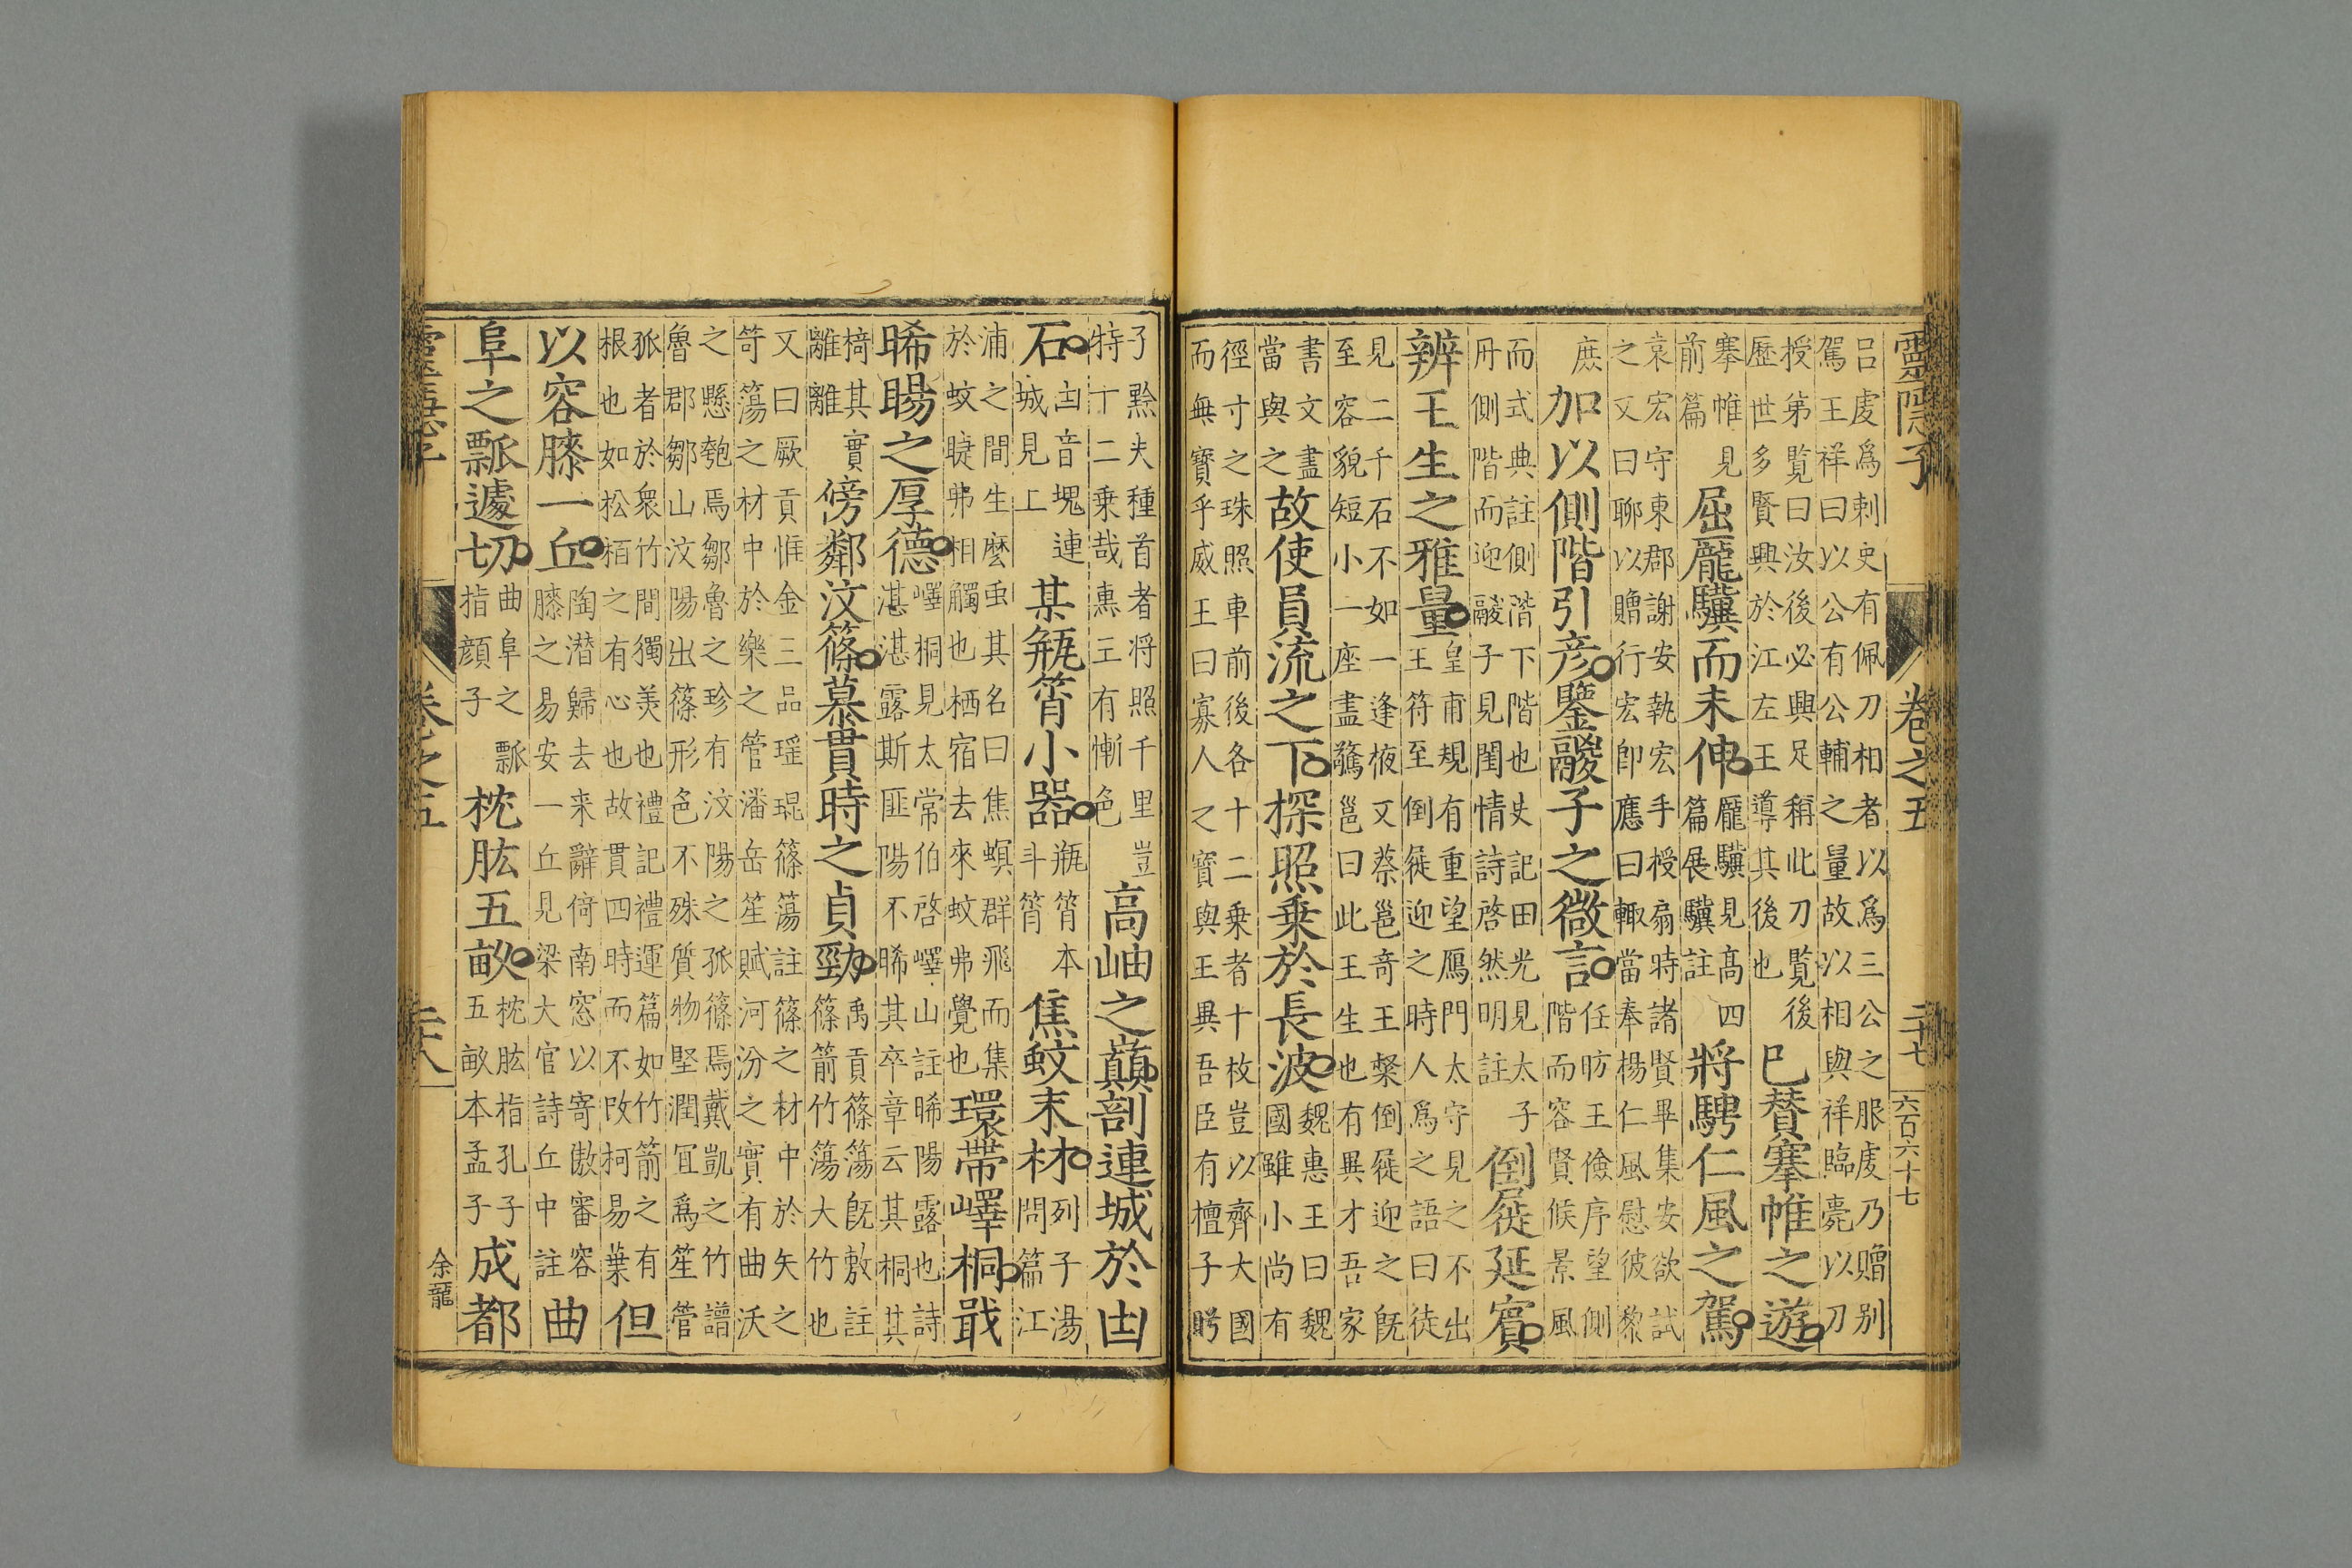 靈隱子 卷之五 三十七 六百六十七
呂虔爲刺史有佩刀相者以爲三公之服虔乃贈别
駕王祥曰以公有公輔之量故以相與祥臨薨以刀
授弟覧曰汝後必興足稱此刀覧後
歷世多賢興於江左王導其後也
已賛搴帷之遊
搴帷見
前篇
屈龐驥而未伸
龎驥見高四
篇展驥註
將騁仁風之駕
袁宏守東郡謝安執宏手授扇時諸賢畢集安欲試
之又曰聊以贈行宏卽應曰輙當奉楊仁風慰彼黎
庶
加以側階引彦鑒鬷子之微言
任昉王儉序望側
階而容賢候景風
而式典註側階下階也史記田光見太子
冊側階而迎鬷子見閨情詩啓然明註
倒屣延賓
辨王生之雅量
皇甫規有重望鴈門太守見之不出
王符至倒屣迎之時人爲之語曰徒
見二千石不如一逢掖又蔡邕奇王粲倒屣迎之旣
至容貌短小一座盡驚邕曰此王生也有異才吾家
書文盡
當與之
故使員流之下探照乗於長波
魏惠王曰魏
國雖小尚有
徑寸之珠照車前後各十二乗者十枚豈以齊大國
而無寳乎威王曰寡人之寳與王異吾臣有檀子盻
子黔夫種首者将照千里豈
特十二乗哉惠王有慚色
高岫之巔剖連城於凷
石
凷音塊連
城見上
某缾筲小器
瓶筲本
斗筲
焦蚊末材
列子湯
問篇江
浦之間生麽虫其名曰焦螟群飛而集
於蚊睫弗相觸也栖宿去來蚊弗覺也
環帶嶧桐戢
晞暘之厚德
嶧桐見太常伯啓嶧山註晞陽露也詩
湛湛露斯匪陽不晞其卒章云其桐其
椅其實
離離
傍鄰汶篠慕貫時之貞勁
禹貢篠簜旣敷註
篠箭竹簜大竹也
又曰厥貢惟金三品瑶琨篠簜註篠之材中於矢之
笴簜之材中於樂之管潘岳笙賦河汾之實有曲沃
之懸匏焉鄒魯之珍有汶陽之孤篠焉戴凱之竹譜
魯郡鄒山汶陽出篠形色不殊質物堅潤冝爲笙管
孤者於衆竹間獨美也禮記禮運篇如竹箭之有
根也如松栢之有心也故貫四時而不改柯易葉
但
以容膝一丘
陶潜歸去来辭倚南窓以寄傲審容
膝之易安一丘見梁大官詩丘中註
曲
阜之瓢遽切
曲阜之瓢
指顔子
枕肱五畝
枕肱指孔子
五畝本孟子
成都
卷之五 三十八
余龍